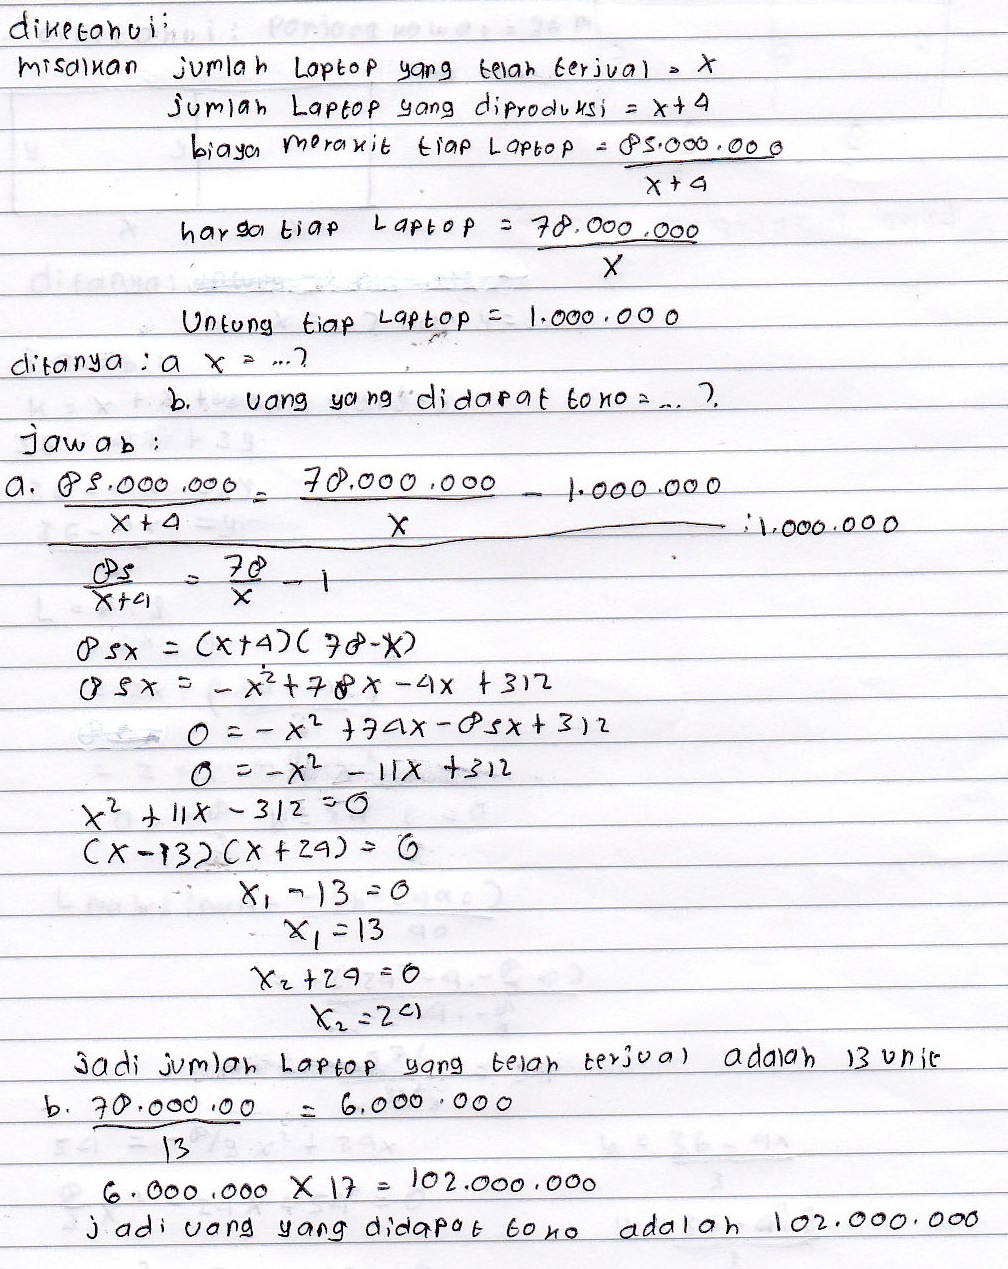 diketahui:
misalkan jumlah Laptop yang telah terjual = x
jumlah Laptop yang diproduksi = x+4
biaya merakit tiap Laptop = 85.000.000 / x+4
harga tiap Laptop = 78.000.000 / x
Untung tiap Laptop = 1.000.000
ditanya : a x = ...?
b. uang yang didapat toko = ... ?
jawab :
a. 85.000.000 / x+4 = 78.000.000 / x - 1.000.000
: 1.000.000
85 / x+4 = 78 / x - 1
85x = (x+4)(78-x)
85x = -x² + 78x - 4x + 312
0 = -x² + 74x - 85x + 312
0 = -x² - 11x + 312
x² + 11x - 312 = 0
(x-13)(x+24) = 0
x₁ - 13 = 0
x₁ = 13
x₂ + 24 = 0
x₂ = 24
Jadi jumlah Laptop yang telah terjual adalah 13 unit
b. 78.000.00 / 13 = 6.000.000
6.000.000 X 17 = 102.000.000
jadi uang yang didapat toko adalah 102.000.000